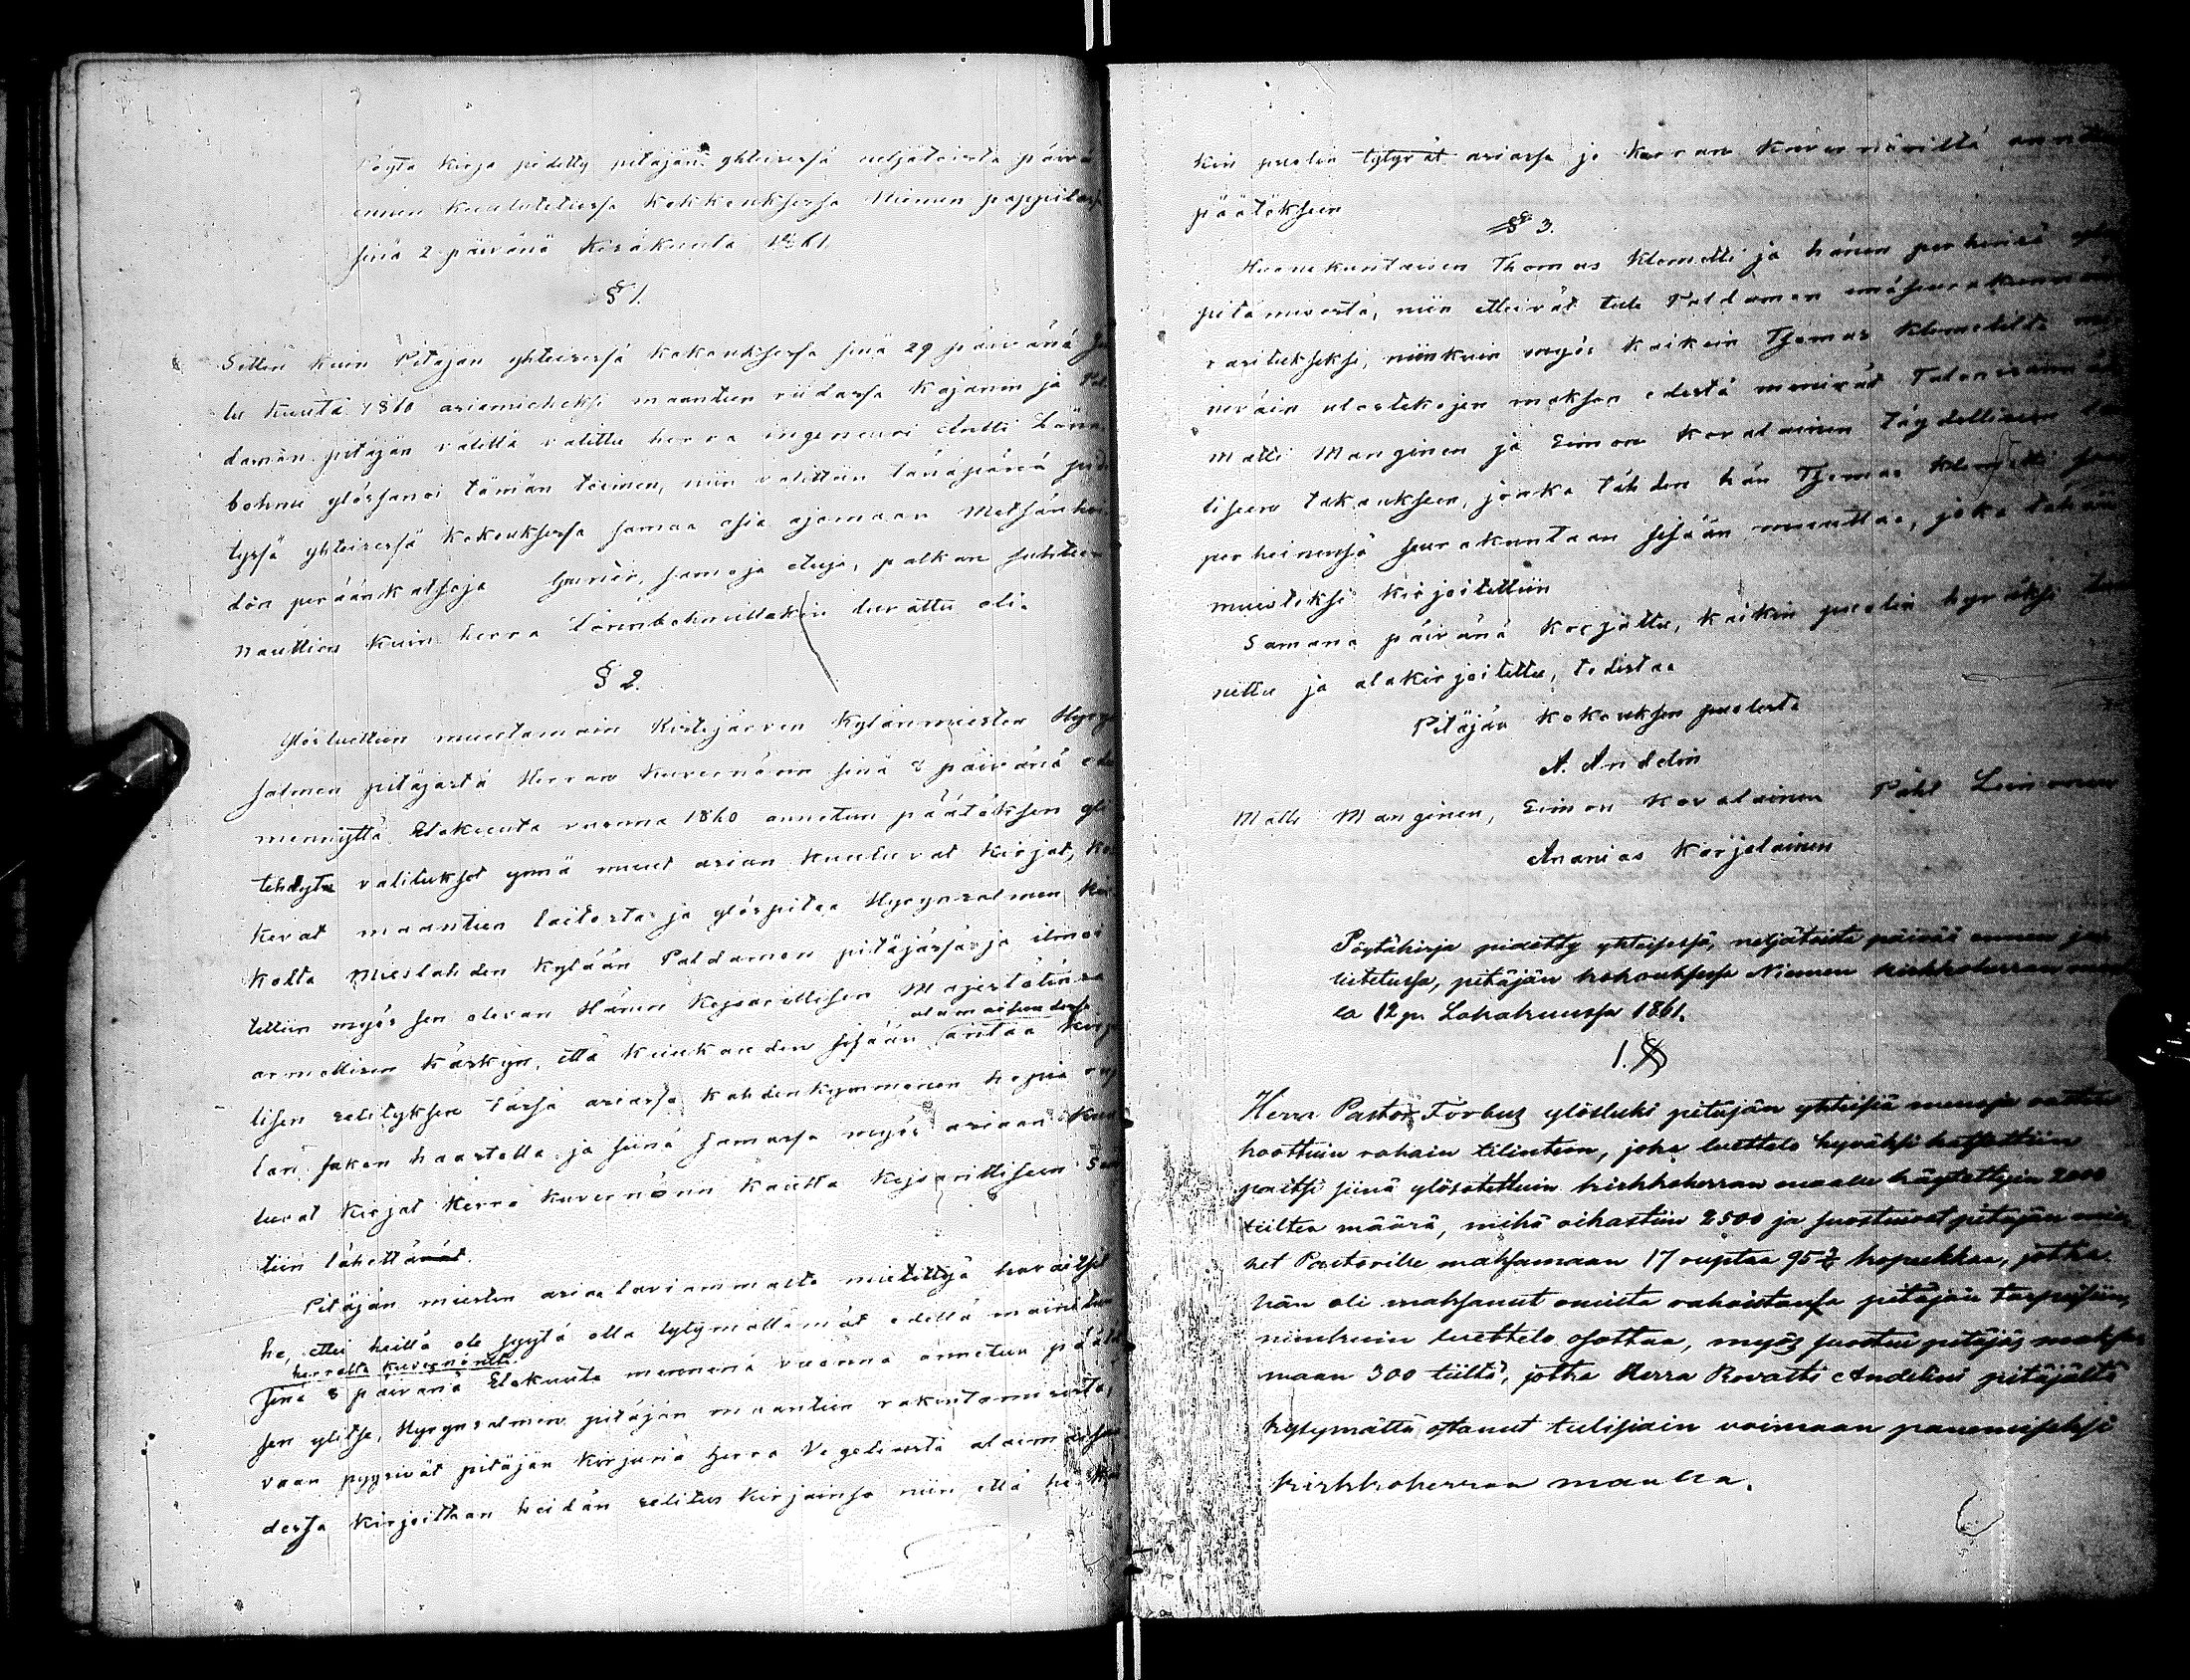 Pöyta kirja pidetty pitäjän yhteisessä neljätoista päivä
ennen kuulutetussa kokkouksessa Niemen pappilassa
sinä 2 päivänä Kesäkuuta 1861
§ 1.
Sitten kuin Pitäjän yhteisessä kokouksessa sinä 29 päivänä
lu kuuta 1860 asiamieheksi maantien riidassa Kajanin ja Pal
damon pitäjän välillä valittu herra ingeneuri Antti Lönn
bohmi ylössanoi tämän toimen, niin valittiin tänäpänä pide
tyssä yhteisessä kokouksessa samaa asia ajamaan Metsänhoi
don peräänkatsoja samoja etuja, palkan suhteen
nauttien kuin herra Lönnbohmillakin luvattu oli.
§ 2.
Ylösluettiin muutamain Ristijärven kylänmiesten Hyryn
salmen pitäjästä Herran Kuvernörin sinä 8 päivänä edes
mennyttä Elokuuta vuonna 1860 annetun päätöksen yli
tehdytu valitukset ynnä muut asian kuuluvat kirjat, kos
kevat maantien laitosta ja ylöspitoa Hyrynsalmen kir
kolta Mieslahden kylään Paldamon pitäjässä, ja ilmoi
tettiin myös sen olevan Hänen Keisarillisen Majestätinsä
armollisen käskyn, että kuukauden sisään alamaisuudessa antaa kirjal
lisen selityksen tässä asiassa kahdenkymmenen hopia rup
lan sakon haastolla ja siinä samassa myös asiaan kuu
luvat kirjat Herra Kuvernörin kautta Keisarilliseen Sena
tiin lähettävät.
Pitäjän miesten asiaa laviammalta mietittyä havaitsit
he, ettei heillä ole syytä olla tytymättömät edellä mainitun
herralta kuvernöriltä
sinä 8 päivänä Elokuuta mennenä vuonna annetun päätök
sen ylitse, Hyrynsalmen pitäjän maantien rakentamisesta,
vaan pyysivät pitäjän kirjuria Herra Vegeliusta alamaisuu
dessa kirjoittaan heidän selitus kirjainsa niin että he kai
kin puolin tytyvät asiassa jo Herran Kuvernöriltä annettuun
päätökseen
§ 3.
Huonekuntaisen Thomas Klemetti ja hänen perheensä ylös
pitämisestä, niin etteivät tule Paldamon emäseurakunnan
rasitukseksi, niinkuin myös kaikein Thomas Klemetiltä
neväin ulostekojen makson edestä menivät Talonisännät
Matti Manginen ja Simon Kovalainen täydelliseen
liseen takaukseen, jonka tähden hän Thomas Klemetti saa
perheinensä seurakuntaan sisään muuttaa, joka tähän
muistiksi kirjoitettiin
Samana päivänä korjattu, kaikin puolin hyväksi tun
nettu ja alakirjoitettu, todistaa
Pitäjän kokouksen puolesta
A. Andelin
Matti Manginen, Simon Kovalainen Påhl Leinonen
Ananias Karjalainen
Pöytäkirja pidetty yhteisessä, neljätoista päivää ennen juu
lutetussa, pitäjän kokouksessa Niemen kirkkoherran maal
la 12 p. Lokakuussa 1861.
1. §
Herra Pastor Forbus ylösluki pitäjän yhteisiä menoja varten
koottuin rahain tilinteon, joka luettelo hyväksi katsottiin
paitsi siinä ylösotettuin kirkkoherran maalla käytettyin 2000
tiilten määrä, mikä oikastiin 2500 ja suostuivat pitäjän mie
het Pastorille maksamaan 17 ruplaa 95 ½ hopeekkaa, jotka
hän oli maksanut omista rahoistansa pitäjän tarpeisiin,
niinkuin luettelo osottaa, myös suostui pitäjäs maksa
maan 300 tiiltä, jotka Herra Rovasti Andelini pitäjältä
kysymättä ottanut tulisiain voimaan panemiseksi
kirkkoherran maalla.